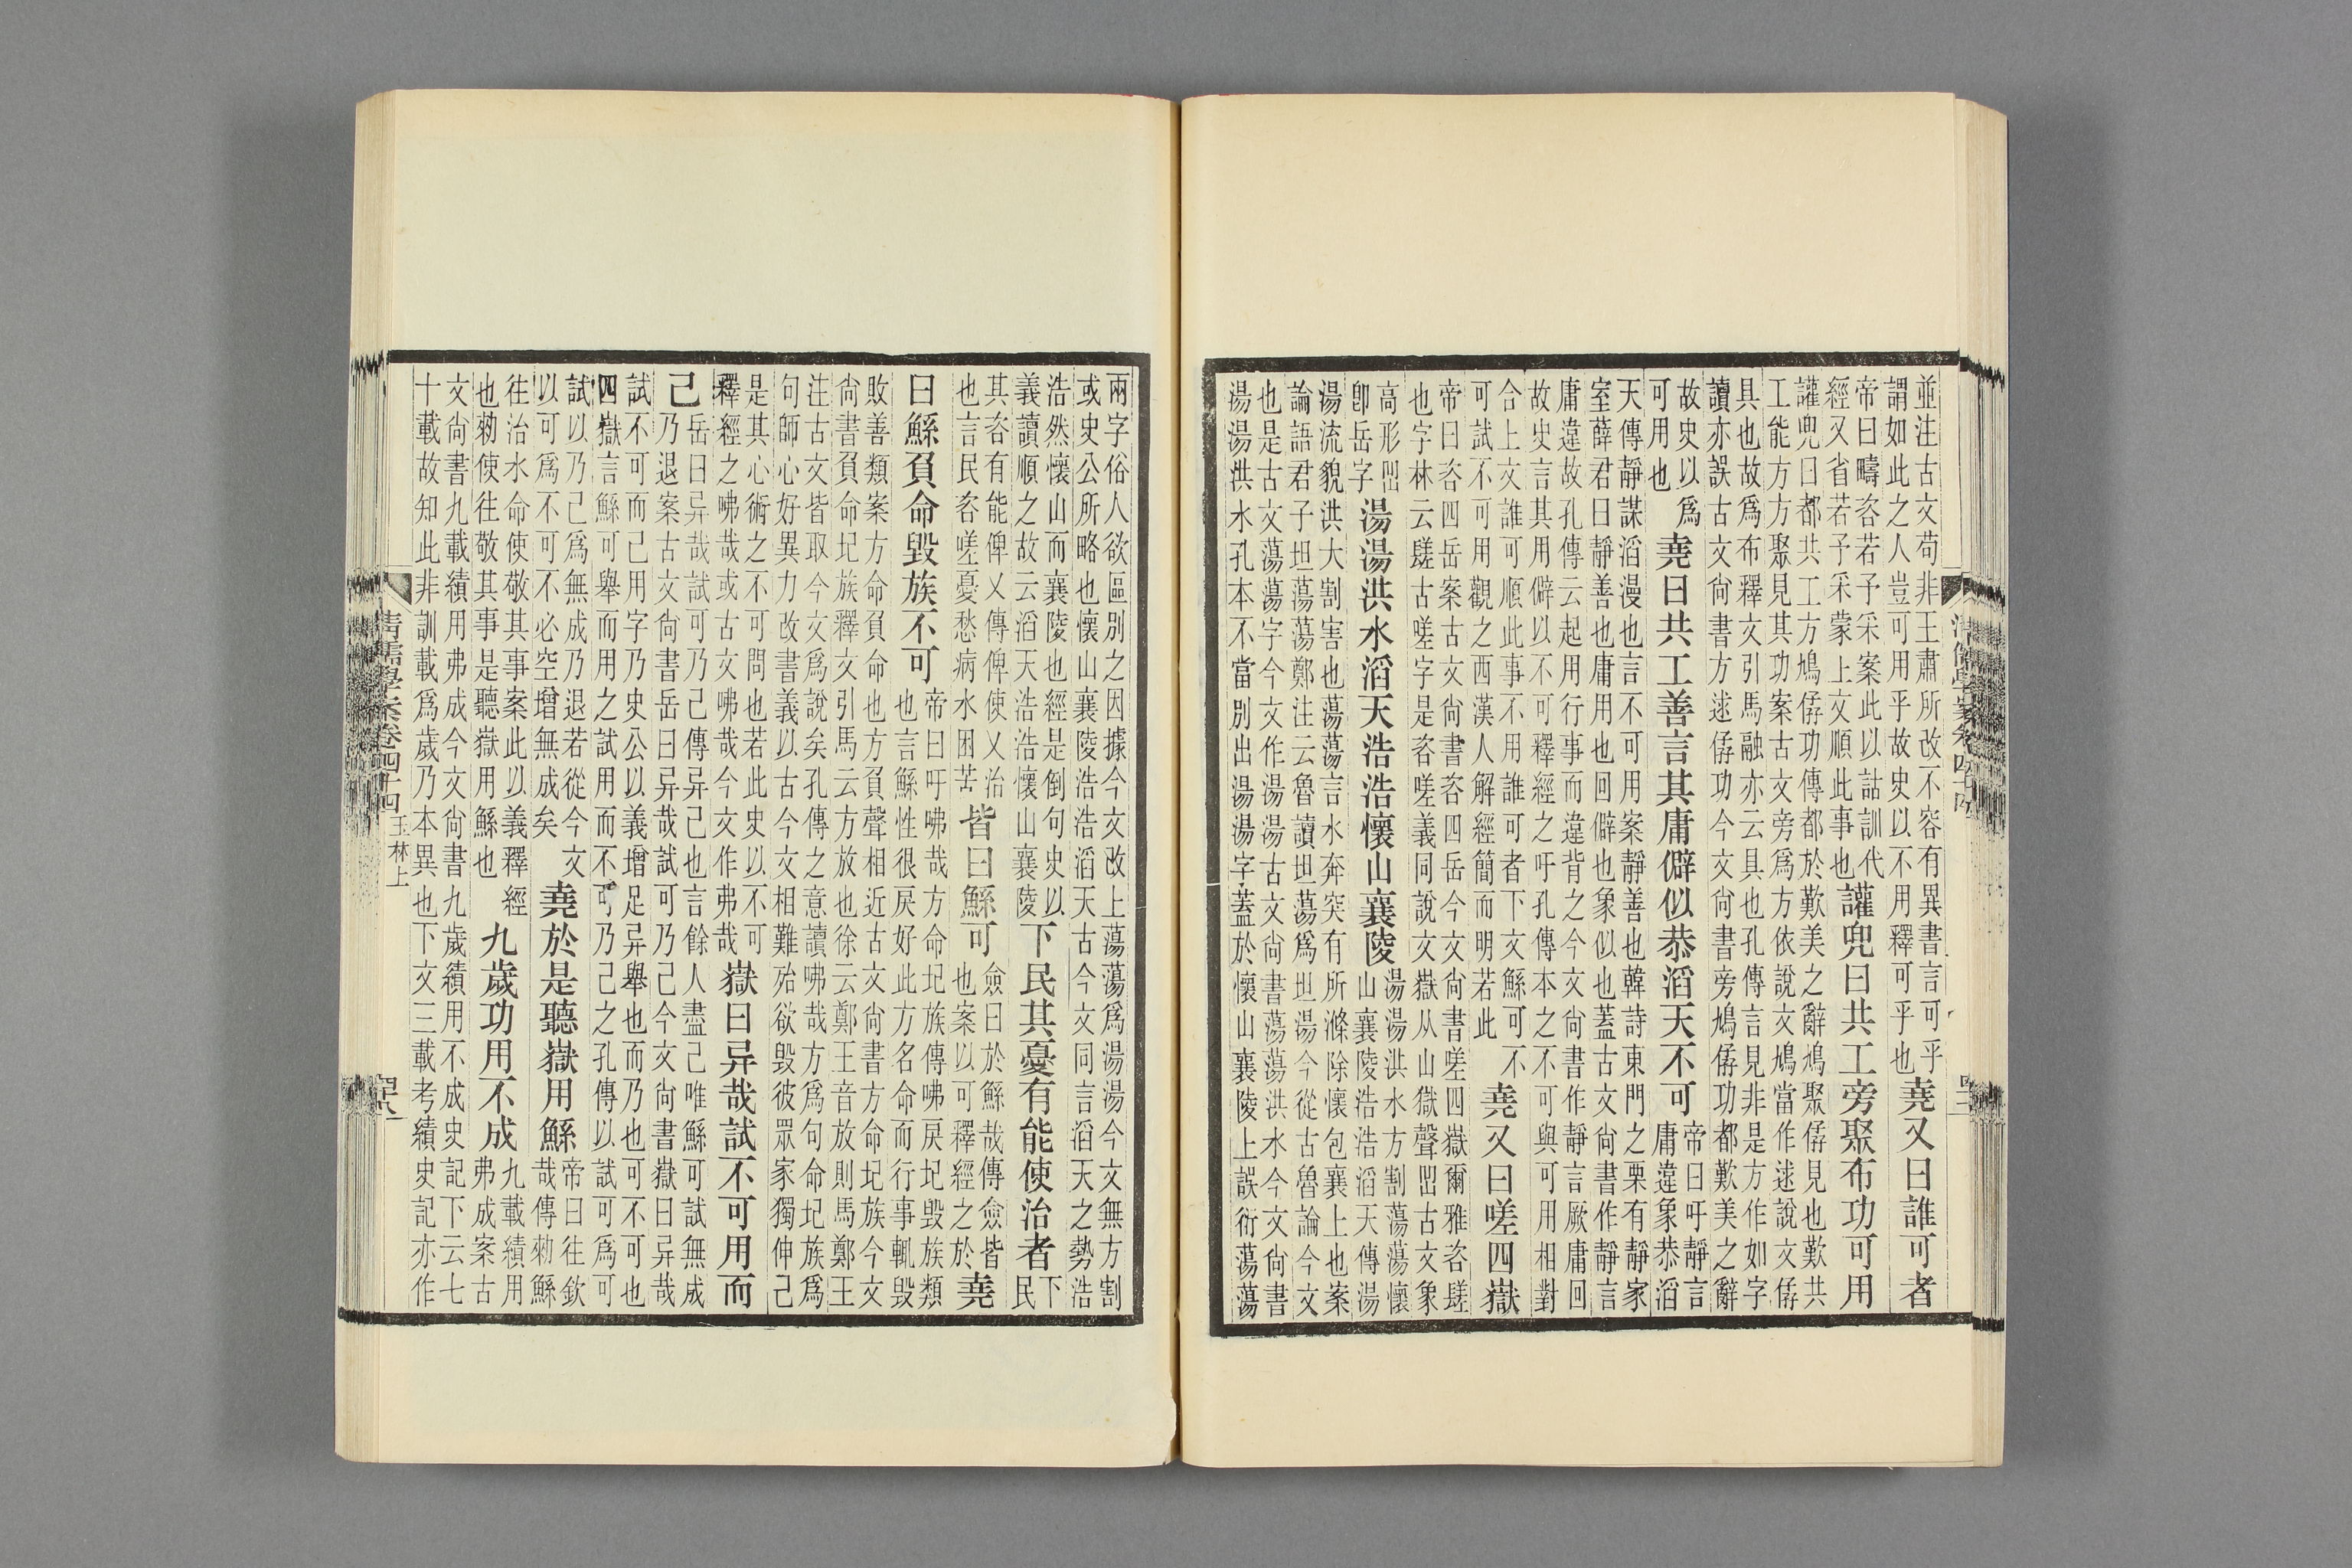 並注古文苟非王肅所改不容有異書言可乎
謂如此之人豈可用乎故史以不用釋可乎也
堯又曰誰可者
帝曰疇咨若予采案此以詁訓代
經又省若予采蒙上文順此事也
讙兜曰共工旁聚布功可用
讙兜曰都共工方鳩僝功傳都於歎美之辭鳩聚僝見也歎共
工能方方聚見其功案古文旁爲方依說文鳩當作逑說文僝
具也故爲布釋文引馬融亦云具也孔傳言見非是方作如字
讀亦誤古文尙書方逑僝功今文尙書旁鳩僝功都歎美之辭
故史以爲
可用也
堯曰共工善言其庸僻似恭滔天不可
帝曰吁靜言
庸違象恭滔
天傳靜謀滔漫也言不可用案靜善也韓詩東門之栗有靜家
室薛君曰靜善也庸用也回僻也象似也蓋古文尙書作靜言
庸違故孔傳云起用行事而違背之今文尙書作靜言厥庸回
故史言其用僻以不可釋經之吁孔傳本之不可與可用相對
合上文誰可順此事不用誰可者下文鯀可不
可試不可用觀之西漢人解經簡而明若此
堯又曰嗟四嶽
帝曰咨四岳案古文尙書咨四岳今文尙書嗟四嶽爾雅咨䁟
也字林云䁟古嗟字是咨嗟義同說文嶽从山獄聲古文象
高形
卽岳字
湯湯洪水滔天浩浩懷山襄陵
湯湯洪水方割蕩蕩懷
山襄陵浩浩滔天傳湯
湯流貌洪大割害也蕩蕩言水奔突有所滌除懷包襄上也案
論語君子坦蕩蕩鄭注云魯讀坦蕩爲坦湯今從古魯論今文
也是古文蕩蕩字今文作湯湯古文尙書蕩蕩洪水今文尙書
湯湯洪水孔本不當別出湯湯字蓋於懷山襄陵上誤衍蕩蕩
兩字俗人欲區別之因據今文改上蕩蕩爲湯湯今文無方割
或史公所略也懷山襄陵浩浩滔天古今文同言滔天之勢浩
浩然懷山而襄陵也經是倒句史以
義讀順之故云滔天浩浩懷山襄陵
下民其憂有能使治者
下
民
其咨有能俾乂傳俾使乂治
也言民咨嗟憂愁病水困苦
皆曰鯀可
僉曰於鯀哉傳僉皆
也案以可釋經之於
堯
曰鯀負命毀族不可
帝曰吁咈哉方命圮族傳咈戾圮毀族類
也言鯀性很戾好此方名命而行事輒毀
敗善類案方命負命也方負聲相近古文尙書方命圮族今文
尙書負命圮族釋文引馬云方放也徐云鄭王音放則馬鄭王
注古文皆取今文爲說矣孔傳之意讀咈哉方爲句命圮族爲
句師心好異力改書義以古今文相難殆欲毀彼眾家獨伸己
是其心術之不可問也若此史以不可
釋經之咈哉或古文咈哉今文作弗哉
嶽曰异哉試不可用而
己
岳曰异哉試可乃己傳异己也言餘人盡己唯鯀可試無成
乃退案古文尙書岳曰异哉試可乃己今文尙書嶽曰异哉
試不可而己用字乃史公以義增足异舉也而乃也可不可也
四嶽言鯀可舉而用之試用而不可乃己之孔傳以試可爲可
試以乃己爲無成乃退若從今文
以可爲不可不必空增無成矣
堯於是聽嶽用鯀
帝曰往欽
哉傳勑鯀
往治水命使敬其事案此以義釋經
也勑使往敬其事是聽嶽用鯀也
九歲功用不成
九載績用
弗成案古
文尙書九載績用弗成今文尙書九歲績用不成史記下云七
十載故知此非訓載爲歲乃本異也下文三載考績史記亦作
清儒學案卷四十四 玉林上